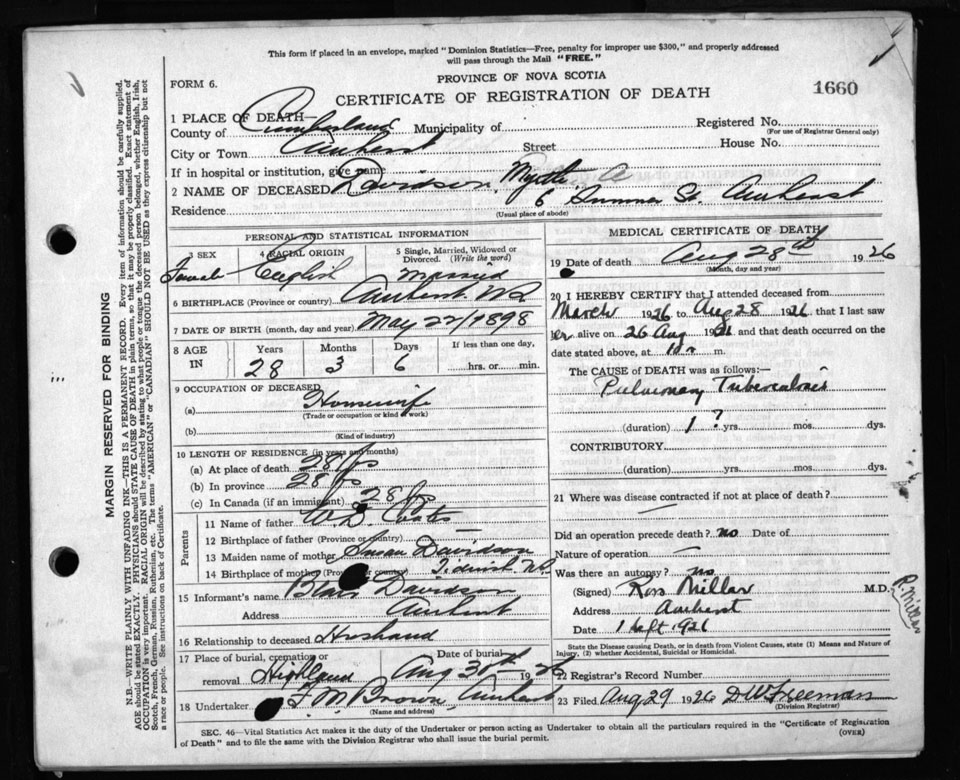 This form if placed in an envelope, marked "Dominion Statistics—Free, penalty for improper use $300," and properly addressed
will pass through the Mail "FREE."
FORM 6.
PROVINCE OF NOVA SCOTIA
CERTIFICATE OF REGISTRATION OF DEATH
1660
1 PLACE OF DEATH—
County of Cumberland Municipality of
Registered No.
(For use of Registrar General only)
City or Town Amherst Street House No.
If in hospital or institution, give name
2 NAME OF DECEASED Davidson, Myrtle A
Residence 6 Summer St. Amherst
(Usual place of abode)
PERSONAL AND STATISTICAL INFORMATION
3 SEX 4 RACIAL ORIGIN 5 Single, Married, Widowed or Divorced. (Write the word)
Female English Married
6 BIRTHPLACE (Province or country) Amherst. N.S.
7 DATE OF BIRTH (month, day and year) May 22/1898
8 AGE IN Years Months Days If less than one day,
28 3 6 hrs. or min.
9 OCCUPATION OF DECEASED
(a) Housewife
(Trade or occupation or kind of work)
(b)
(Kind of industry)
10 LENGTH OF RESIDENCE (in years and months)
(a) At place of death 28 yrs
(b) In province 28 yrs
(c) In Canada (if an immigrant) 28 yrs
Parents
11 Name of father W. D.
12 Birthplace of father (Province or country)
13 Maiden name of mother Susan Davidson
14 Birthplace of mother (Province or country) Tidnish N.S.
15 Informant's name Davidson
Address Amherst
16 Relationship to deceased Husband
17 Place of burial, cremation or removal Highland Date of burial Aug 30th 1926
18 Undertaker F. M. Brown, Amherst
(Name and address)
MEDICAL CERTIFICATE OF DEATH
19 Date of death Aug 28th 1926
(Month, day and year)
20 I HEREBY CERTIFY that I attended deceased from
March 1926 to Aug 28 1926 that I last saw
er alive on 26 Aug 1926 and that death occurred on
date stated above, at 10 a m.
The CAUSE of DEATH was as follows:—
Pulmonary Tuberculosis
(duration) 1? yrs. mos. dys.
CONTRIBUTORY
(duration) yrs. mos. dys.
21 Where was disease contracted if not at place of death?
Did an operation precede death? no Date of
Nature of operation —
Was there an autopsy? no
(Signed) Ross Millar M.D.
R. Millar
Address Amherst
Date 1 Sept 1926
State the Disease causing Death, or in death from Violent Causes, state (1) Means and Nature of Injury, (2) whether Accidental, Suicidal or Homicidal.
22 Registrar's Record Number
23 Filed Aug 29 1926 D W Freeman
(Division Registrar)
SEC. 46—Vital Statistics Act makes it the duty of the Undertaker or person acting as Undertaker to obtain all the particulars required in the "Certificate of Registration
of Death" and to file the same with the Division Registrar who shall issue the burial permit.
(OVER)
MARGIN RESERVED FOR BINDING
N.B.—WRITE PLAINLY WITH UNFADING INK—THIS IS A PERMANENT RECORD. Every item of information should be carefully supplied.
AGE should be stated EXACTLY. PHYSICIANS should STATE CAUSE OF DEATH in plain terms, so that it may be properly classified. Exact statement of
OCCUPATION is very important. RACIAL ORIGIN will be described by stating to what people or tongue the deceased person belonged, whether English, Irish,
Scotch, French, German, Russian, Ruthenian, etc. The terms "AMERICAN" or "CANADIAN" SHOULD NOT BE USED as they express citizenship but not
a race or people. See instructions on back of Certificate.